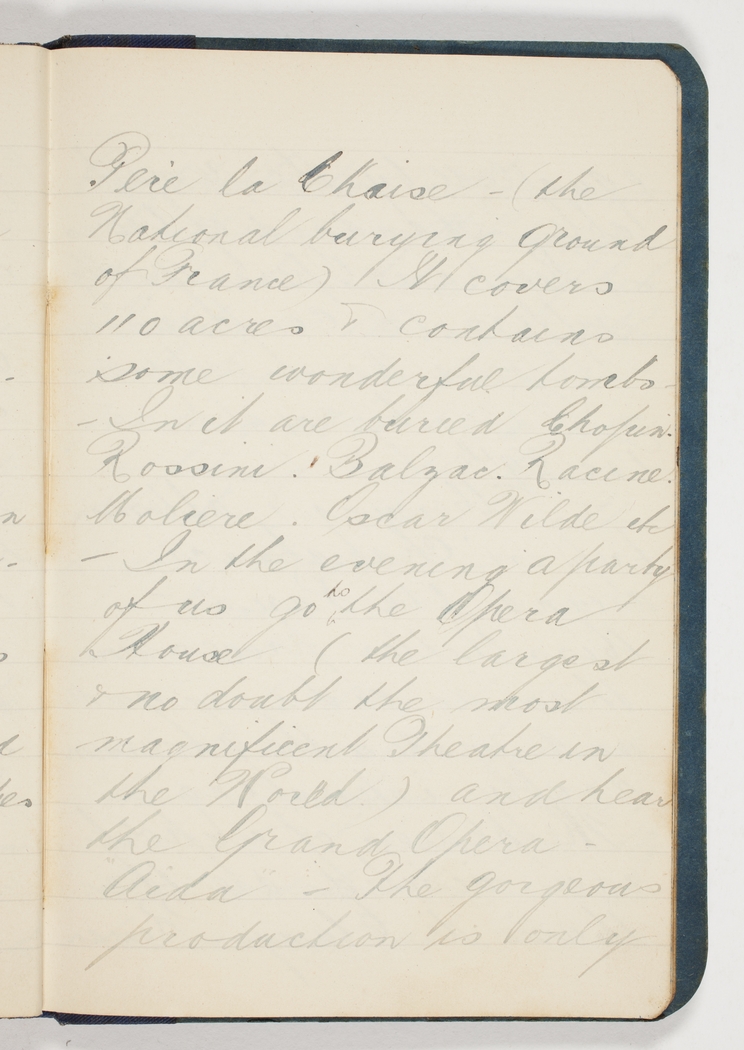 Père la Chaise - (the
National burying ground
of France) It covers
110 acres & contains
some wonderful tombs -
- In it are buried Chopin.
Rossini. Balzac. Racine.
Moliere. Oscar Wilde etc
- In the evening a party
of us go to the Opera
House (the largest
& no doubt the most
magnificent Theatre in
the World.) and hear
the Grand Opera -
"Aida" - The gorgeous
production is only